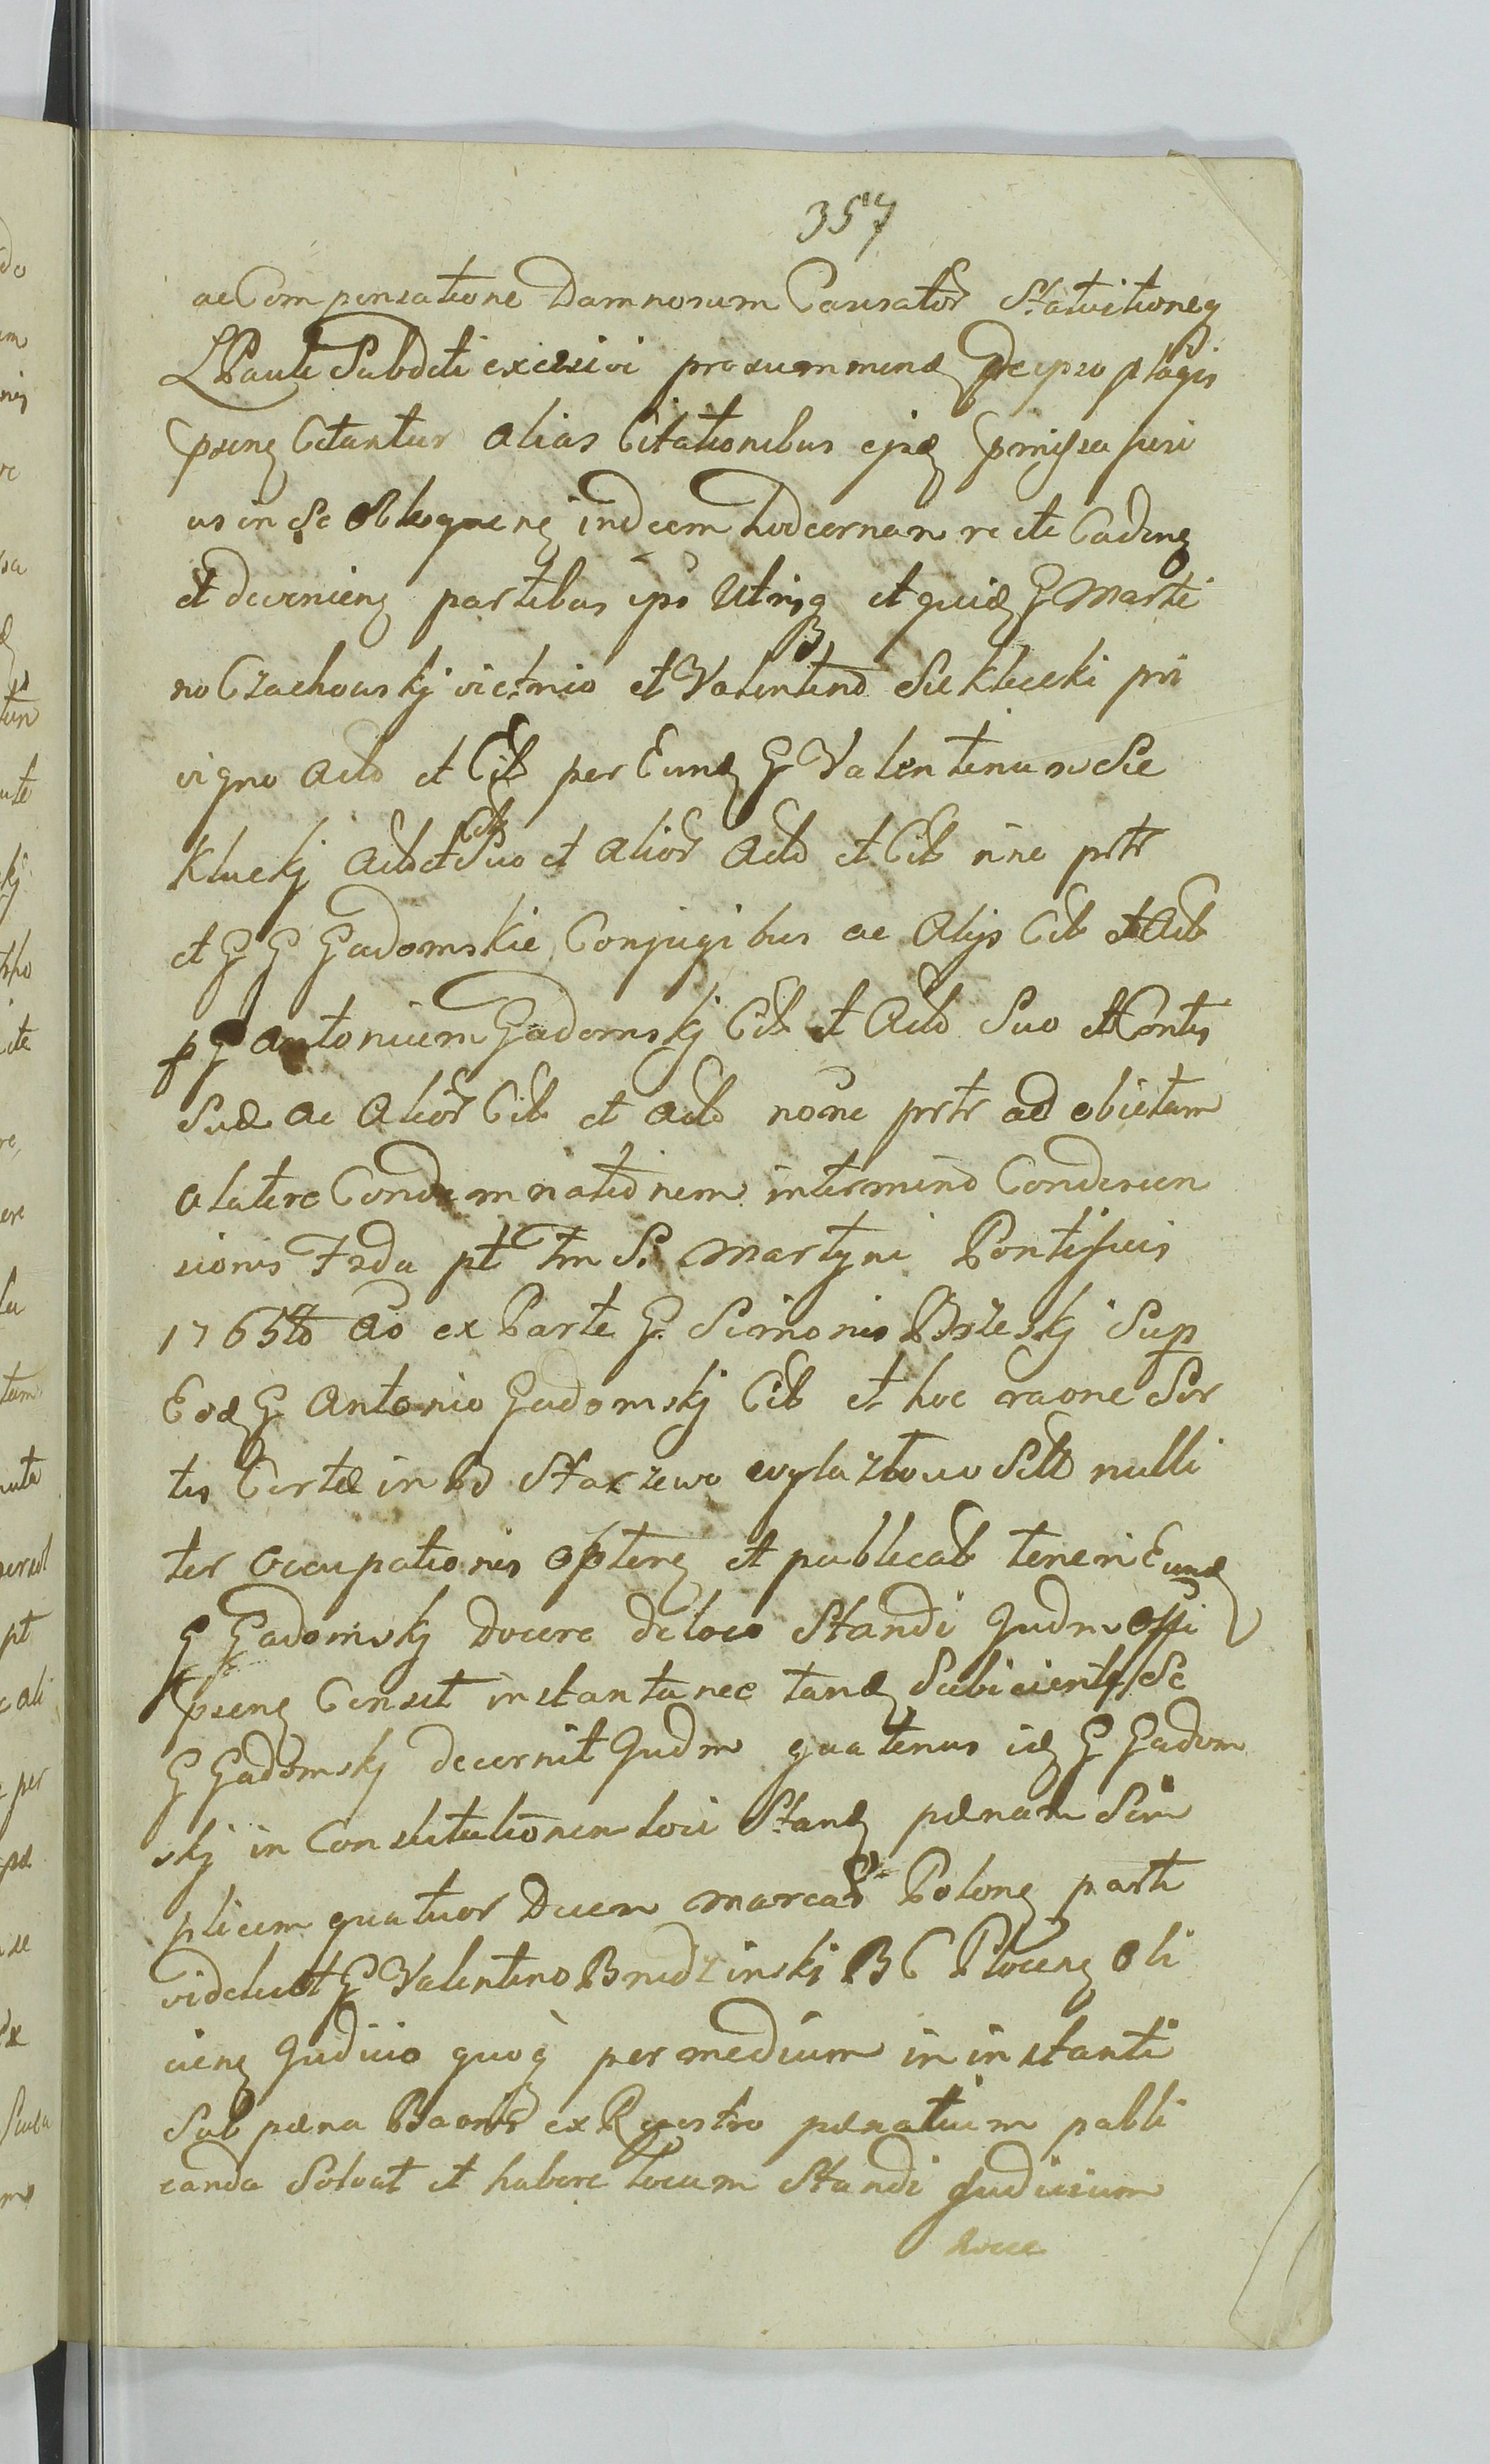 357
ac Compensatione Damnorum Causator Statuitioneq
L Pauli Subditi excessivi pro summend de ipso plagis
psens Citantur alias Citationibus ejsd pmissa fusi
us in se obloquens indeem hodiernam rite Cadens
et deveniens partibus ips Utrisq et quid G Marti
no Czachowskj victrico et Valentino Siekluckj pri
vigno Actb et Citt per Eund G Valentinum Sie
kluckj Actb et Citt suo et alior Actb et Citt nne prtr
et G G Gadomskie Conjugibus ac Alijs Citt et Actb
p G Antonium Gadomskj Citt et Actb Suo et Contis
Suæ ac Alior Citt et Actb noõne prtr ad obictam
a latere Condemnationem in termino Condescen
sionis Frda pt Tm S. Martyni Pontificis
1765to Ao ex Parte G Simonis Brzeskj Sup
Eod G Antonio Gadomskj Citt et hoc raone Sor
tis Certæ in Bo Starzewo wylazłowo Sitt nulli
ter occupationis optens et publicatt teneri Eund
G Gadomskj Docere de loco Standi Judm offi
psens Censet instantanee tand Subiicients Se
G Gadomskj decernit Judm quatenus id G Gadom
skj in Constitutionem loci Stand pænam Sim
plicem quatuor Decem marcar Polons parti
videlicet G Valentino Brudzinskj B C Plocens Oli
ciens Judicio quoq per medium in instanti
Sub pæna Baonis ex Regestro pænatium publi
canda Solvat et habere locum Standi Judicium
hocce